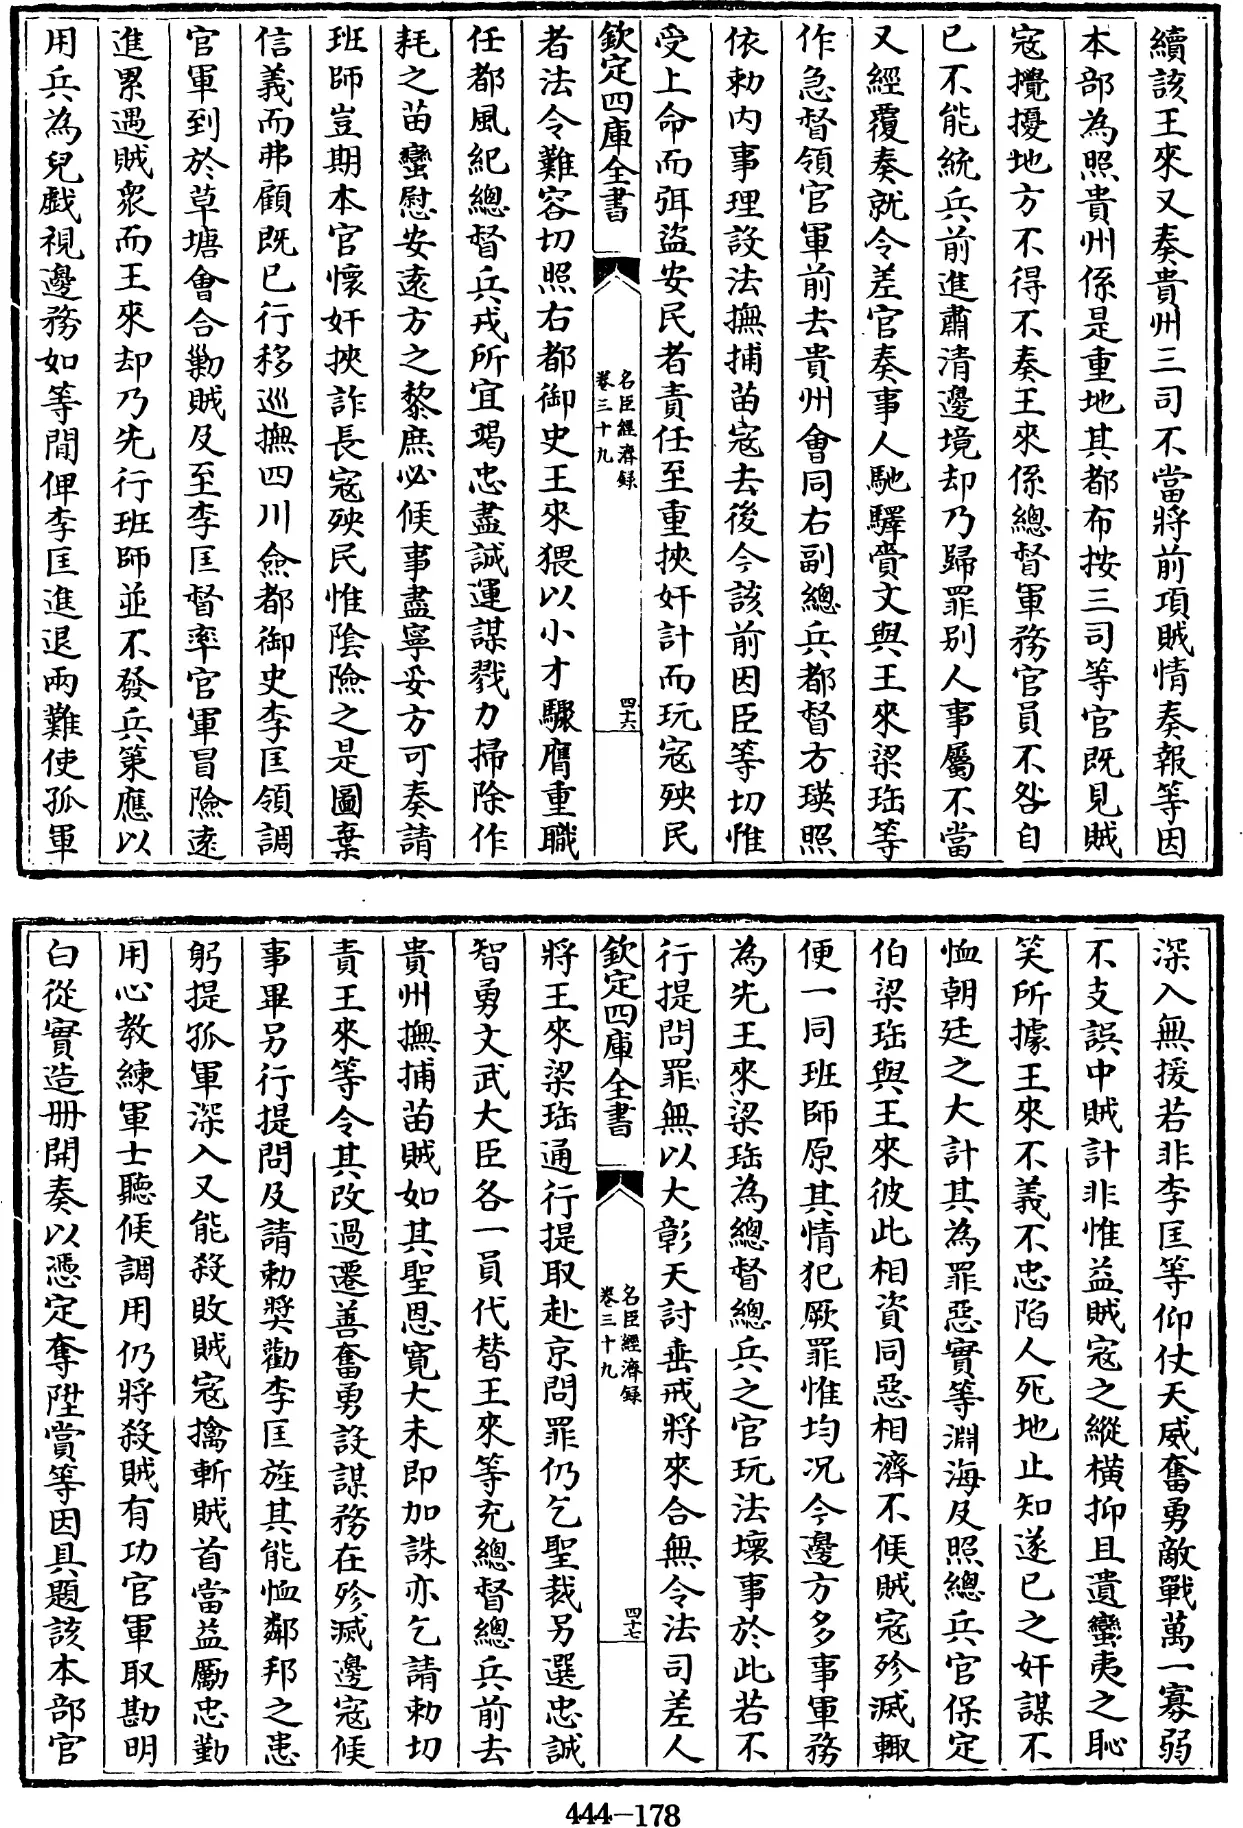 續該王來又奏貴州三司不當將前項賊情奏報等因
本部為照貴州係是重地其都布按三司等官既見賊
寇攪擾地方不得不奏王來係總督軍務官員不咎自
已不能統兵前進肅清邊境却乃歸罪別人事屬不當
又經覆奏就令差官奏事人馳驛賫文與王來梁珤等
作急督領官軍前去貴州會同右副總兵都督方瑛照
依勅內事理設法撫捕苗寇去後今該前因臣等切惟
受上命而弭盜安民者責任至重挾奸計而玩寇殃民
欽定四庫全書
名臣經濟録
卷三十九
四十六
者法令難容切照右都御史王來猥以小才驟膺重職
任都風紀總督兵戎所宜竭忠盡誠運謀戮力掃除作
耗之苗蠻慰安遠方之黎庶必候事盡寧妥方可奏請
班師豈期本官懷奸挾詐長寇殃民惟陰險之是圖棄
信義而弗顧既已行移巡撫四川僉都御史李匡領調
官軍到於草塘會合勦賊及至李匡督率官軍冒險遠
進累遇賊衆而王來却乃先行班師並不發兵策應以
用兵為兒戲視邊務如等閒俾李匡進退兩難使孤軍
深入無援若非李匡等仰仗天威奮勇敵戰萬一寡弱
不支誤中賊計非惟益賊寇之縱橫抑且遺蠻夷之恥
笑所據王來不義不忠陷人死地止知遂已之奸謀不
恤朝廷之大計其為罪惡實等淵海及照總兵官保定
伯梁珤與王來彼此相資同惡相濟不候賊寇殄滅輙
便一同班師原其情犯厥罪惟均况今邊方多事軍務
為先王來梁珤為總督總兵之官玩法壞事於此若不
行提問罪無以大彰天討垂戒將來合無令法司差人
欽定四庫全書
名臣經濟録
卷三十九
四十七
將王來梁珤通行提取赴京問罪仍乞聖裁另選忠誠
智勇文武大臣各一員代替王來等充總督總兵前去
貴州撫捕苗賊如其聖恩寬大未即加誅亦乞請勅切
責王來等令其改過遷善奮勇設謀務在殄滅邊寇候
事畢另行提問及請勅奬勸李匡旌其能恤鄰邦之患
躬提孤軍深入又能殺敗賊寇擒斬賊首當益厲忠勤
用心教練軍士聽候調用仍將殺賊有功官軍取勘明
白從實造冊開奏以憑定奪陞賞等因具題該本部官
444-178